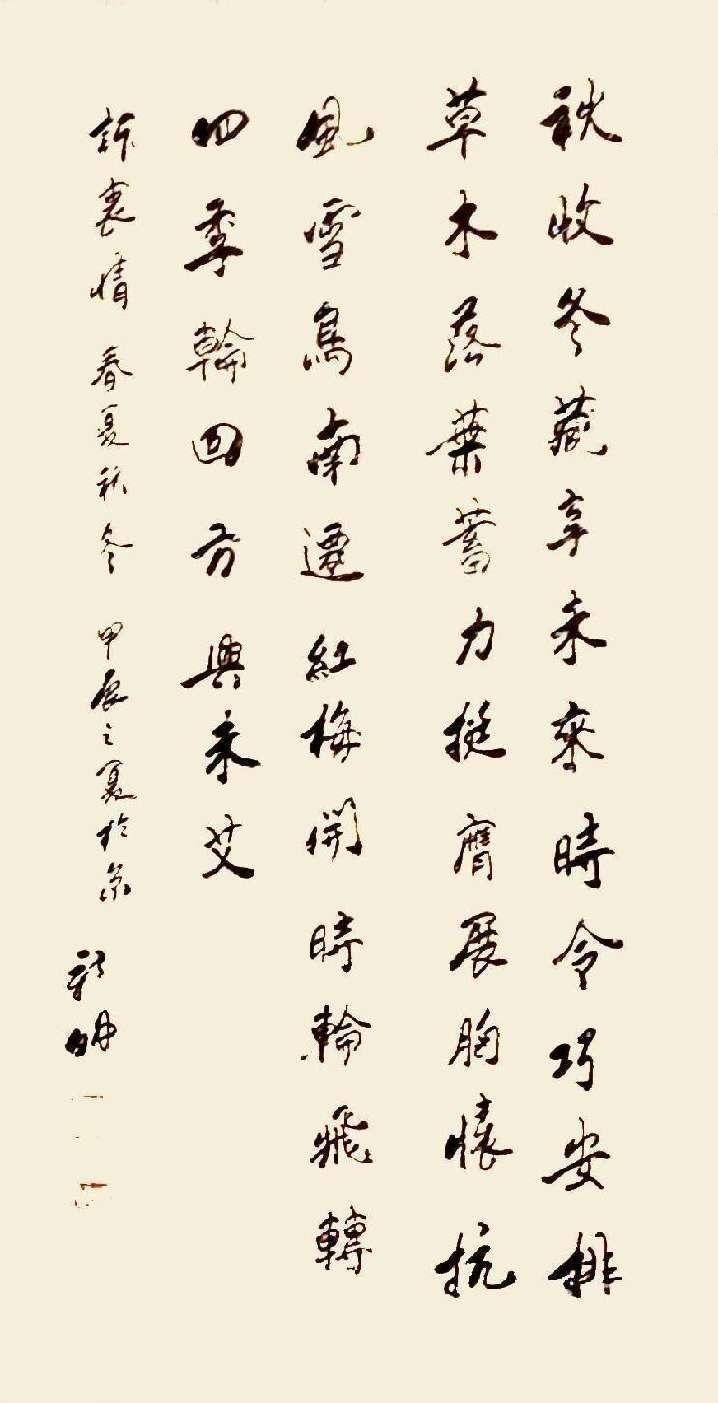 秋收冬藏享未來時令巧安排
草木落葉蓄力挺膺展胸懷抗
風雪鳥南遷紅梅開時輪飛轉
四季輪回方興未艾
訴衷情 春夏秋冬 甲辰之夏於京 新明